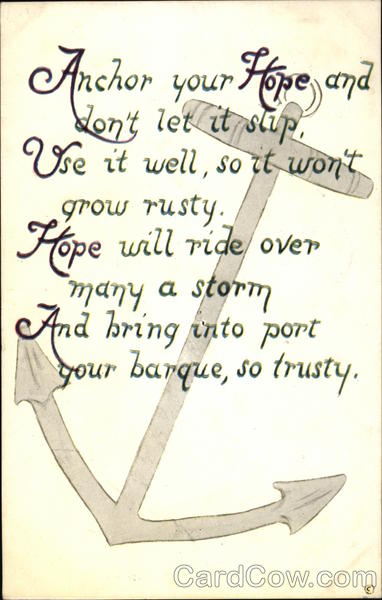 Anchor your Hope and
don't let it slip,
Use it well, so it won't
grow rusty.
Hope will ride over
many a storm
And bring into port
your barque, so trusty.
©
CardCow.com